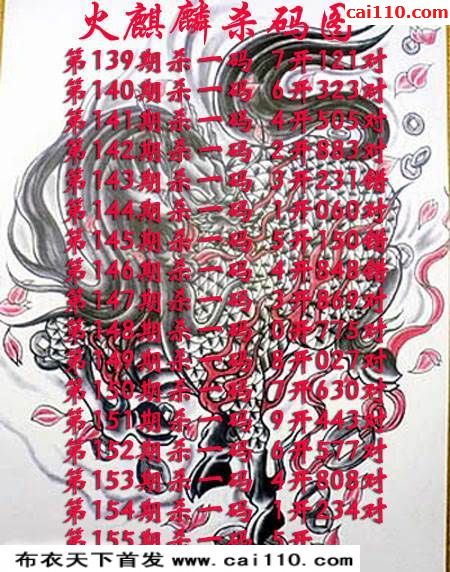 cai110.com
火麒麟杀码图
第139期杀一码 7开121对
第140期杀一码 6开323对
第141期杀一码 4开505对
第142期杀一码 2开883对
第143期杀一码 3开231错
第144期杀一码 1开060对
第145期杀一码 5开150错
第146期杀一码 4开848错
第147期杀一码 3开869对
第148期杀一码 0开775对
第149期杀一码 8开027对
第150期杀一码 7开630对
第151期杀一码 9开443对
第152期杀一码 6开577对
第153期杀一码 4开808对
第154期杀一码 1开234对
第155期杀一码 5开
布衣天下首发 www.cai110.com